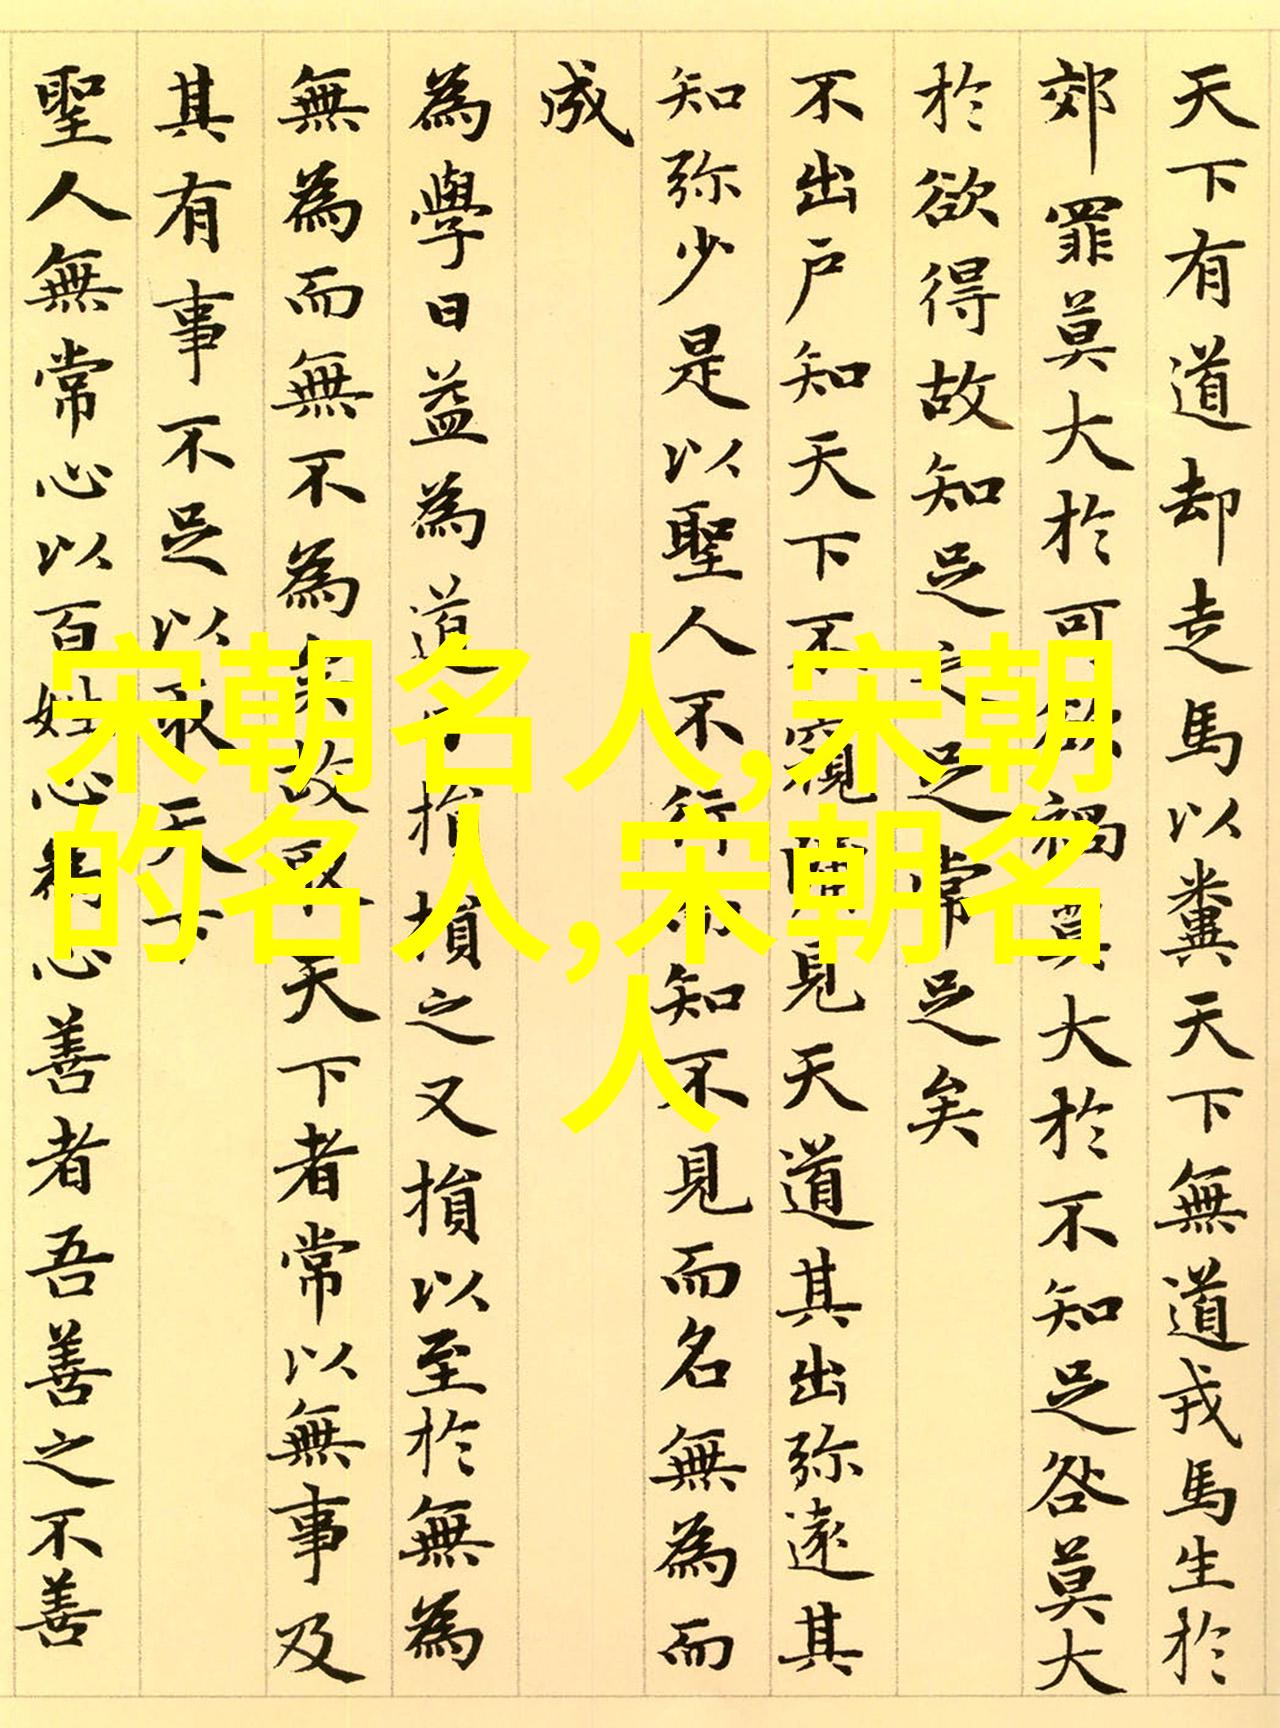 天下有道却走馬以糞天下無道戎馬生於
郊罪莫大於可欲禍莫大於不知足咎莫大
於欲得故知足之足常足矣
不出户知天下不窺牖見天道其出弥遠其
知弥少是以聖人不行而知不見而名無為而
成
為學日益為道日損損之又損以至於無為
無為而無不為矣故取天下者常以無事及
其有事不足以取天下
聖人無常心以百姓心為心善者吾善之不善
宋朝名人,宋朝
的名人,宋朝名
人